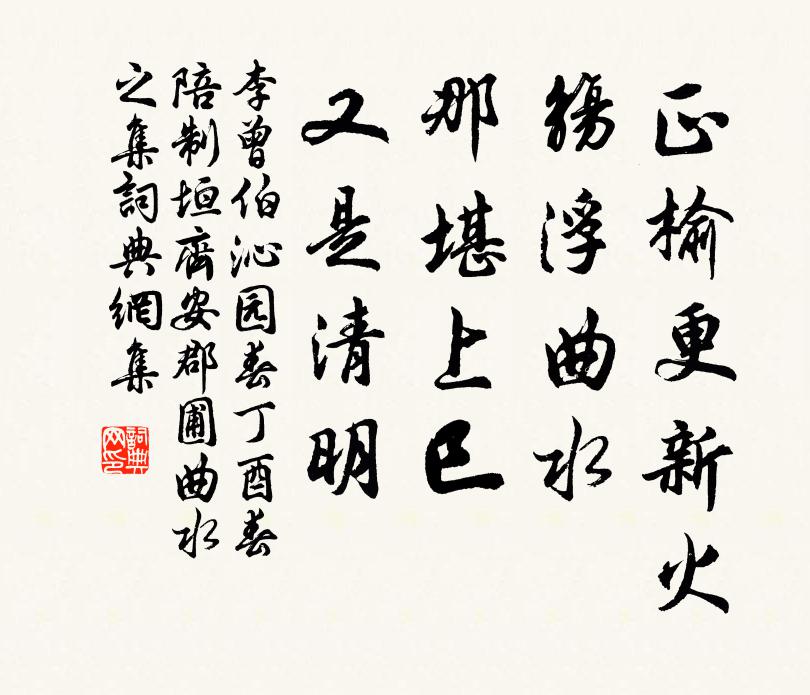 正榆更新火
觞浮曲水
那堪上巳
又是清明
李曾伯沁园春丁酉春
陪制垣齊安郡圃曲水
之集詞典網集
詞典
网印